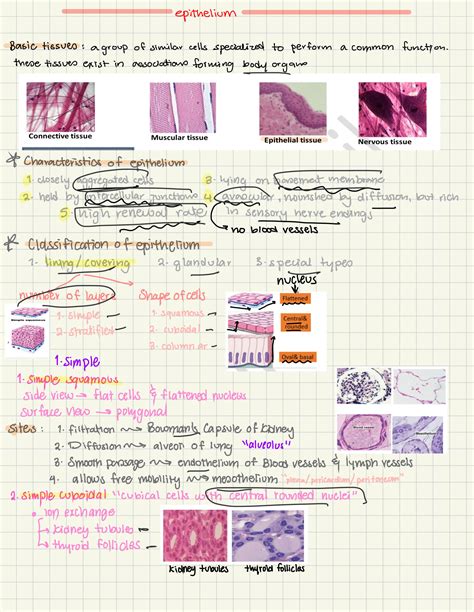 epithelium
Basic tissues: a group of similar cells specialized to perform a common function.
these tissues exist in associations forming body organs
Connective tissue Muscular tissue Epithelial tissue Nervous tissue
* Characteristics of epithelium
1. closely aggregated cells 3. lying on basement membrane
2. held by intercellular junctions 4. avascular, nourished by diffusion, but rich
5. high renewal rate in sensory nerve endings
no blood vessels
* Classification of epithelium
1. lining/covering 2. glandular 3. special types
nucleus
number of layers Shape of cells Flattened
1. simple 1. squamous
2. stratified 2. cuboidal Central& rounded
3. columnar
Oval& basal
1. Simple
1. Simple squamous
side view → flat cells & flattened nucleus
surface view → polygonal
Sites: 1. filtration → Bowman's Capsule of kidney
2. Diffusion → alveoli of lung "alveolus"
3. Smooth passage → endothelium of Blood vessels & lymph vessels
4. allows free mobility → mesothelium "pleura/pericardium/peritoneum"
2. simple cuboidal "cubical cells with central rounded nuclei"
• ion exchange
↳ kidney tubules
↳ thyroid follicles
kidney tubules thyroid follicles